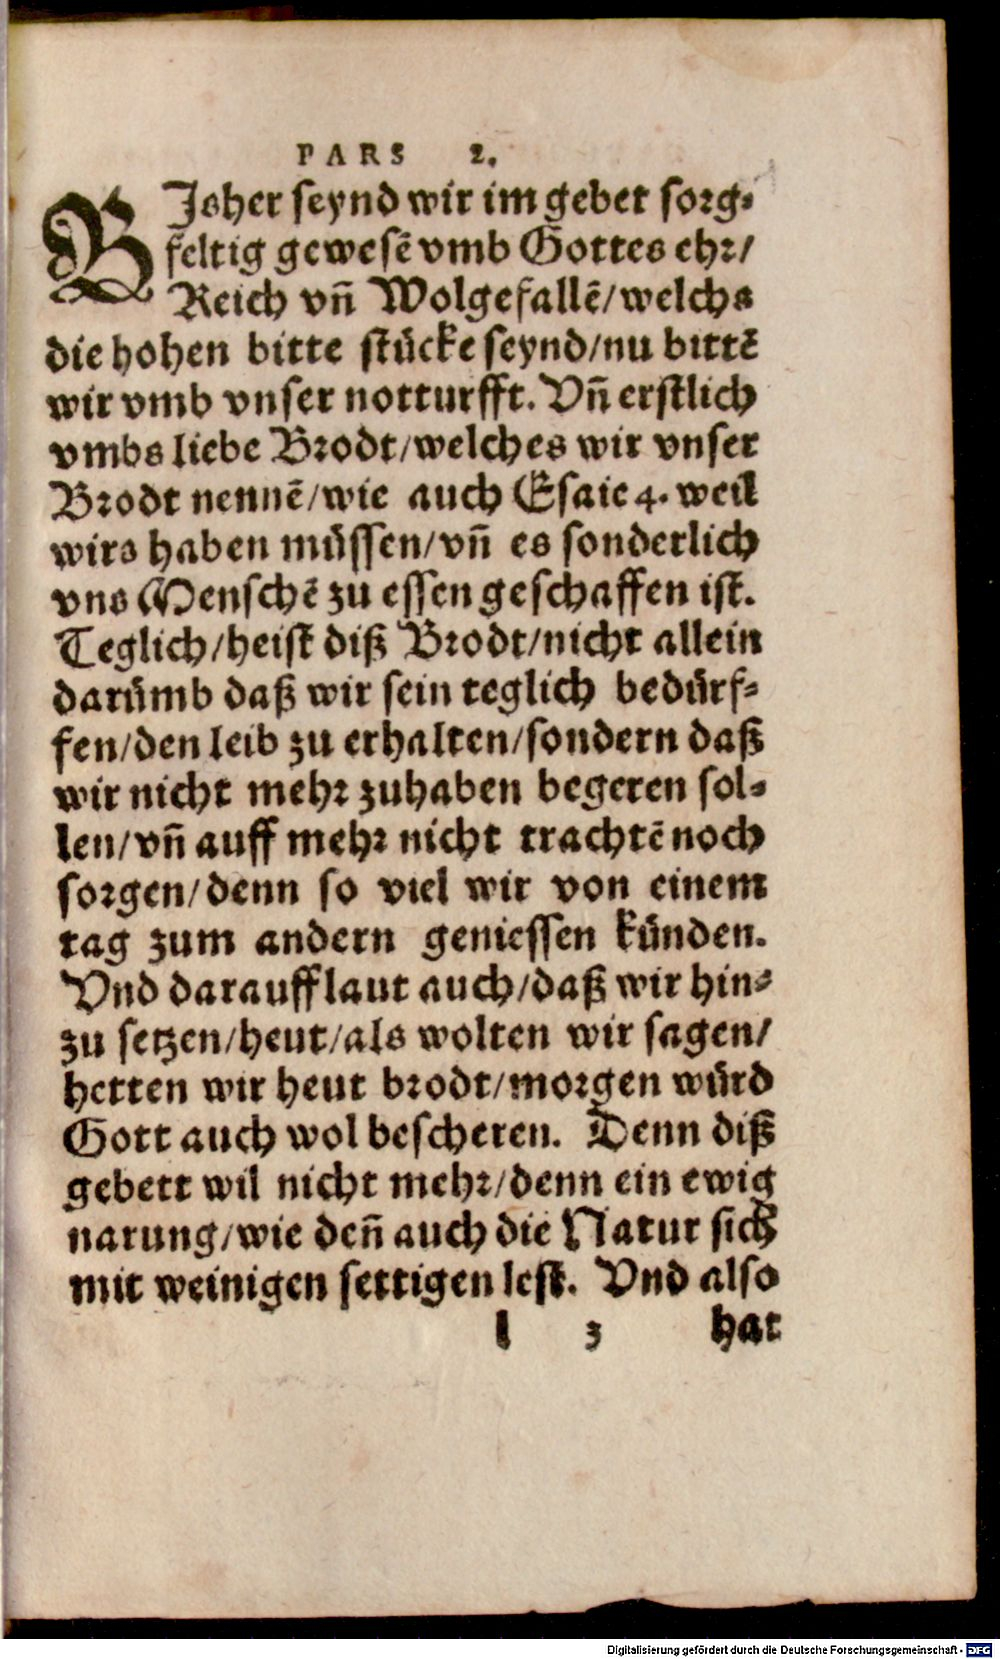 PARS 2.
BJsher seynd wir im gebet sorg-
feltig gewesẽ vmb Gottes ehr/
Reich vñ Wolgefallẽ/welchs
die hohen bitte stücke seynd/nu bittẽ
wir vmb vnser notturfft. Vñ erstlich
vmbs liebe Brodt/welches wir vnser
Brodt nennẽ/wie auch Esaie 4. weil
wirs haben müssen/vñ es sonderlich
vns Menschẽ zu essen geschaffen ist.
Teglich/heist diß Brodt/nicht allein
darümb daß wir sein teglich bedürf-
fen/den leib zu erhalten/sondern daß
wir nicht mehr zuhaben begeren sol-
len/vñ auff mehr nicht trachtẽ noch
sorgen/denn so viel wir von einem
tag zum andern geniessen künden.
Vnd darauff laut auch/daß wir hin-
zu setzen/heut/als wolten wir sagen/
hetten wir heut brodt/morgen würd
Gott auch wol bescheren. Denn diß
gebett wil nicht mehr/denn ein ewig
narung/wie deñ auch die Natur sich
mit weinigen settigen lest. Vnd also
l 3 hat
Digitalisierung gefördert durch die Deutsche Forschungsgemeinschaft - DFG